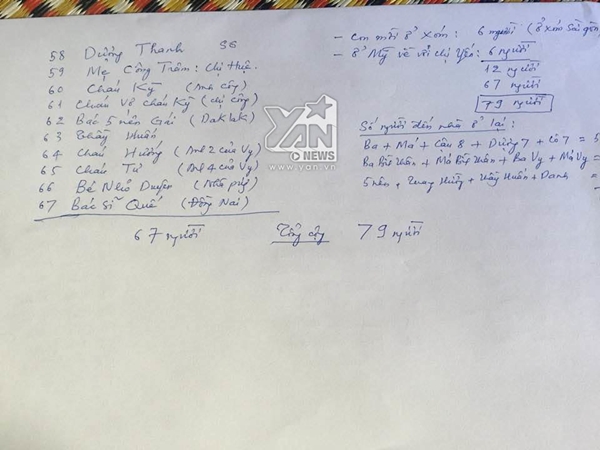 58 Dượng Thanh SG
59 Mẹ Công Trâm: Chị Huệ.
60 Cháu Kỳ (Anh cây)
61 Cháu Vợ cháu Kỳ (chị cây)
62 Bác 5 nên Gái (Daklak)
63 Thầy Huấn
64 Cháu Hướng (Anh 2 của Vy)
65 Cháu Tư (Anh 4 của Vy)
66 Bé Nhỏ Duyên (Nhà )
67 Bác Sĩ Quế (Đồng Nai)
67 người
Tổng cộng 79 người
- Con mời ở Xóm: 6 người (ở xóm Sài gòn
- ở Mỹ về với chị Yến: 6 người
12 người
67 người
79 người
Số người đến nhà ở lại:
Ba + Má + Cậu 8 + Dượng 7 + Cô 7 = 5
Ba + Má + Ba Vy + Má Vy =
5 nên + Hướng + Thầy Huấn + Danh =
YAN
NEWS
www.yan.vn